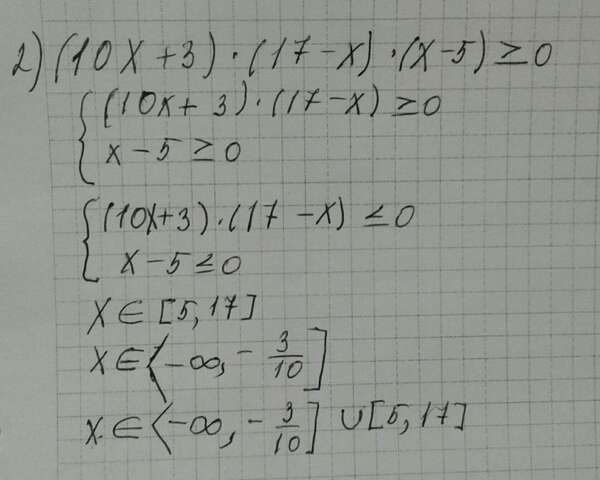 2) (10x+3)·(17-x)·(x-5)≥0
{(10x+3)·(17-x)≥0
x-5≥0
{(10x+3)·(17-x)≤0
x-5≤0
x∈[5,17]
x∈⟨-∞,-3/10]
x∈⟨-∞,-3/10]∪[5,17]